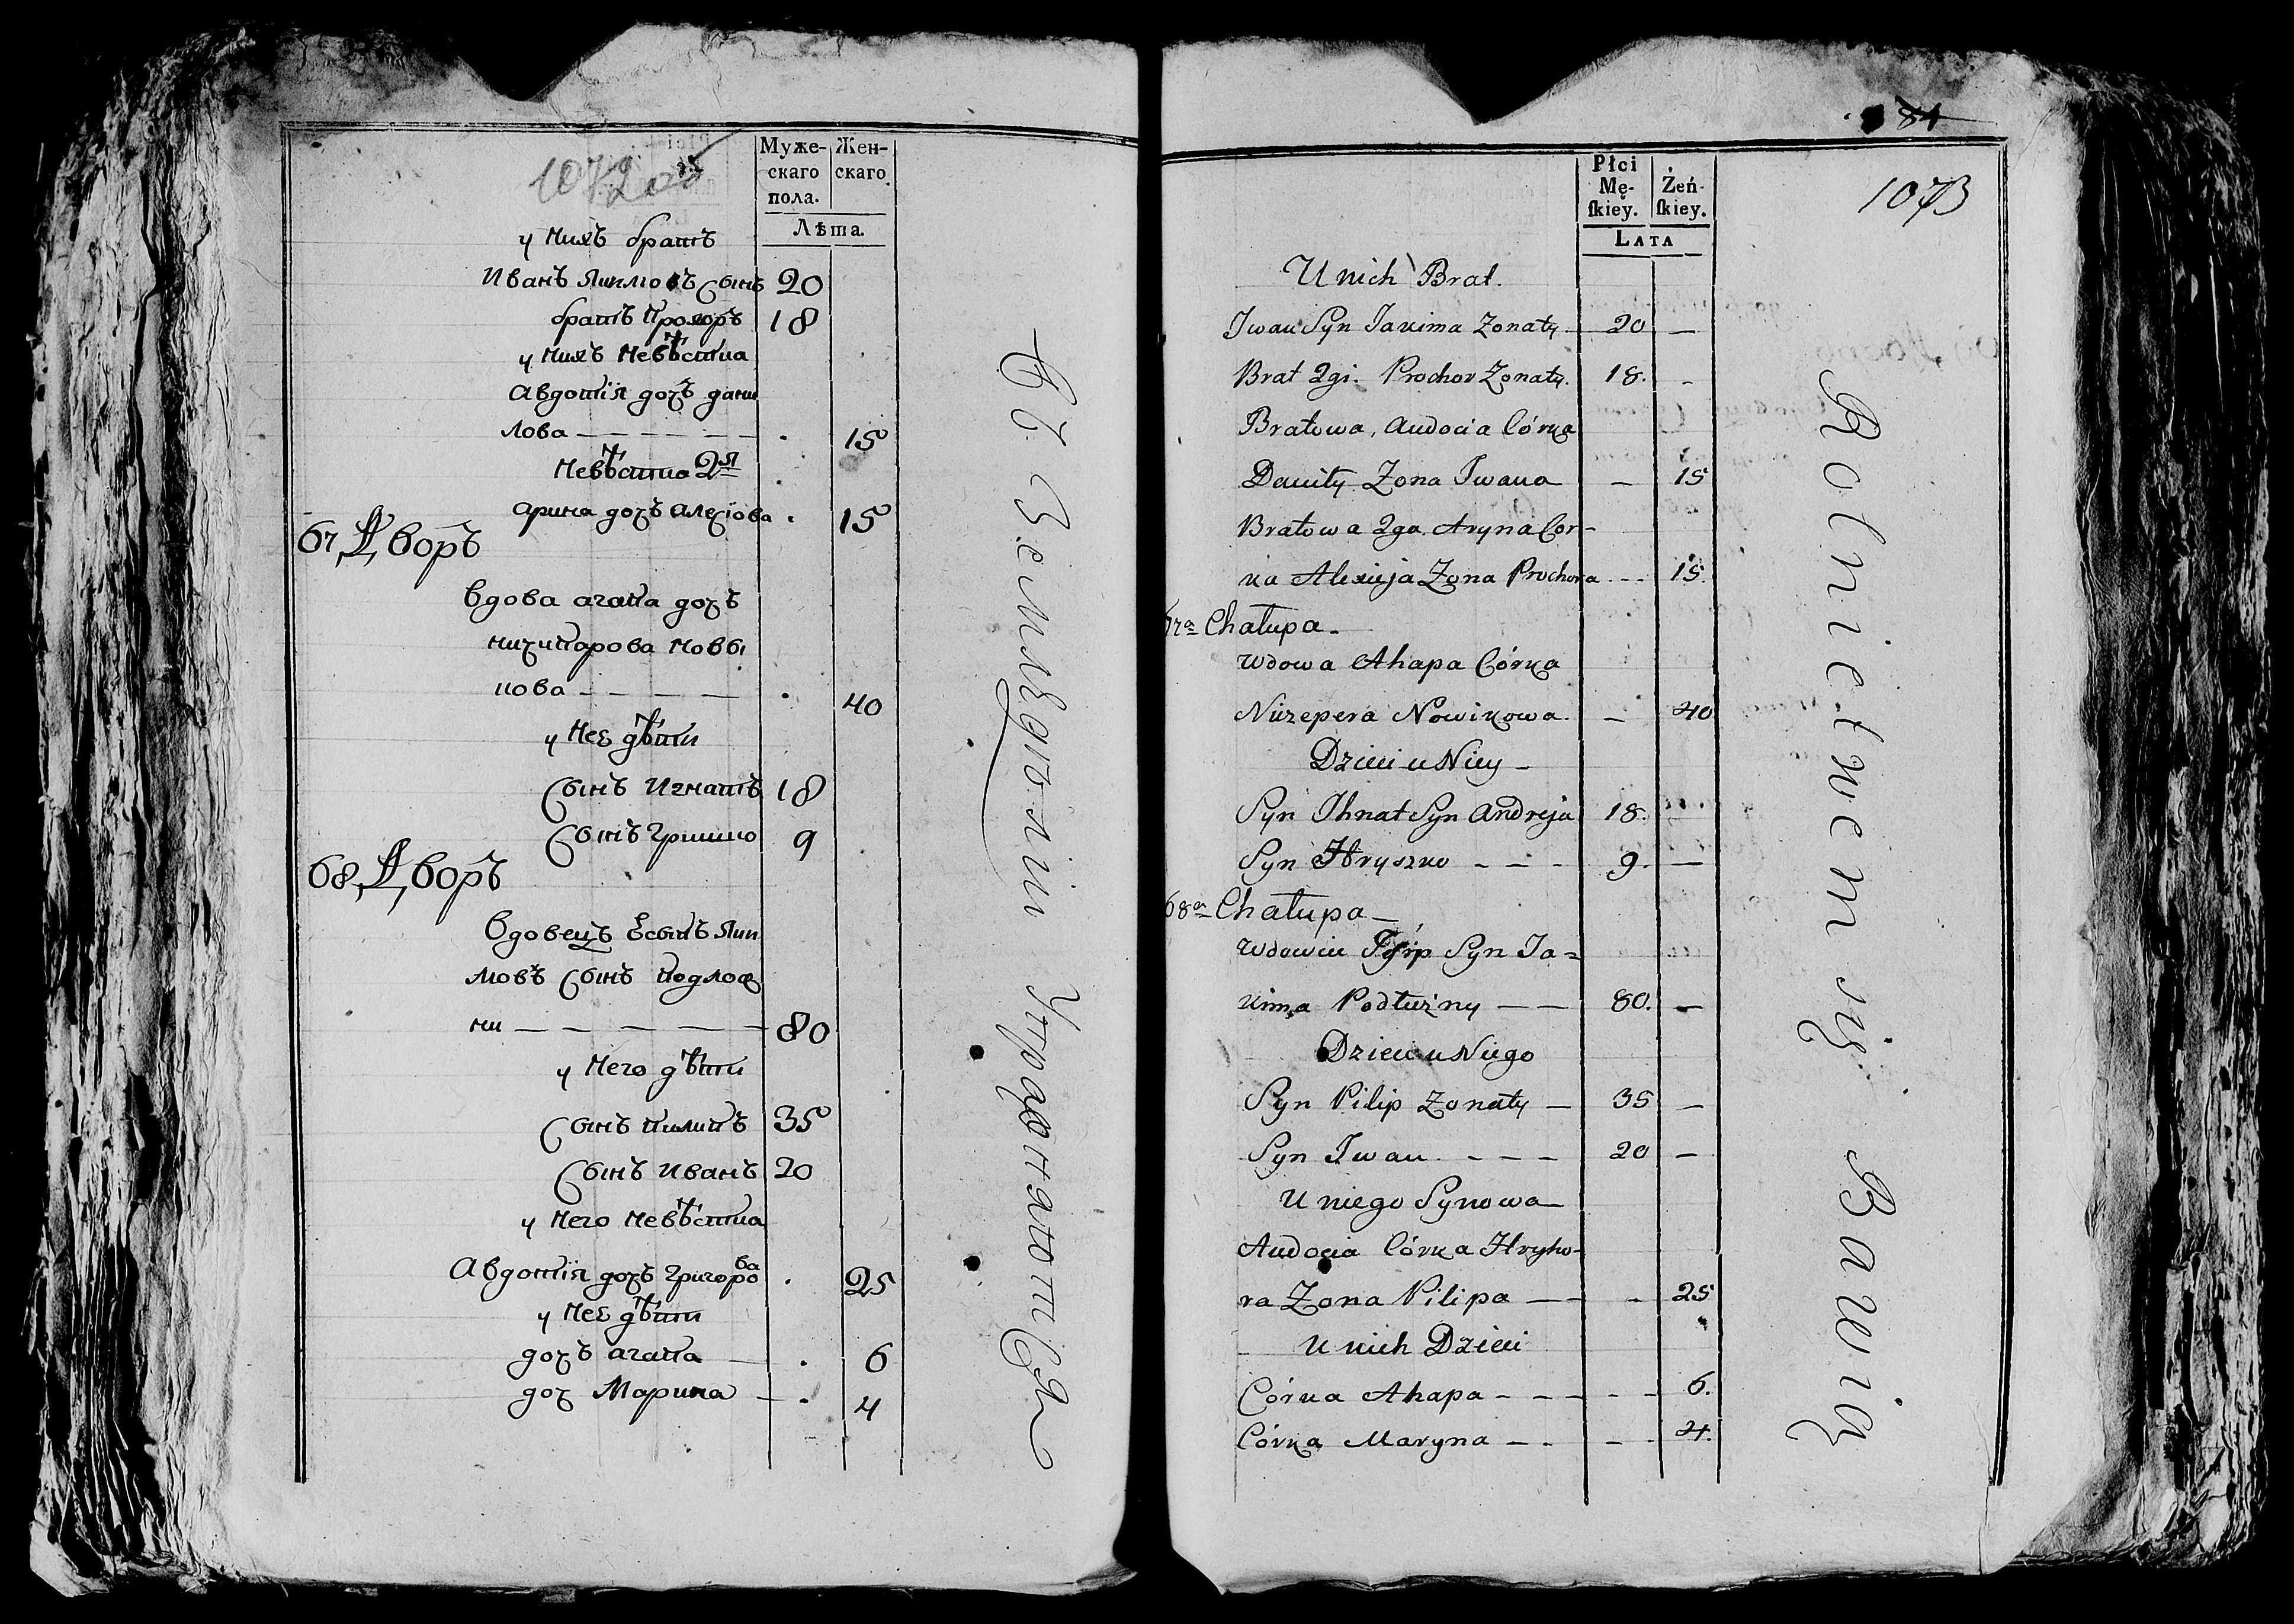 1072
Муже-
скаго
пола.
Жен-
скаго
Лѣта.
у нихъ братъ
Иванъ Якимовъ сынъ 20
братъ Прохоръ 18
у нихъ невѣстка
Авдотія дочъ дани
лова — — — — — — . 15
невѣстка 2я .
арина дочъ алексіова . 15
67, Дворъ
Вдова агапа дочъ
ничипарова нови
кова — — — — . 40
у неѣ дѣти
сынъ Игнатъ 18
сынъ Гришко 9
68, Дворъ
Вдовецъ Есипъ Яки
мовъ сынъ подлож
ни — — — — — 80
у него дѣти
сынъ пилипъ 35
сынъ Иванъ 20
у него невѣстка
Авдотія дочъ григорова . 25
у неѣ дѣти
дочъ агапа — . 6
доч Марина — . 4
въ Земледѣліи УпражняютСя
84
1073
Płci
Mę-
ſkiey.
Żeń-
ſkiey.
LATA
U nich Brat.
Iwan Syn Jakima Zonaty — 20 —
Brat 2gi. Prochor Zonaty. 18. -
Bratowa, Audocia Córka
Daniły Zona Iwana — 15
Bratowa 2ga. Aryna Cor-
ka Alexieja Zona Prochora - - - 15.
67a Chałupa -
Wdowa Ahapa Córka
Niczepera Nowikowa. — 40
Dzieci u Niey -
Syn Ihnat Syn Andreja 18. —
Syn Hryszko - - - 9. —
68a Chałupa —
Wdowiec Jesip Syn Ja=
kima Podłużny — — 80. —
Dzieci u Niego
Syn Pilip Zonaty — 35 —
Syn Iwan. - - — 20 —
U niego Synowa
Audocia Córka Hryho-
ra Zona Pilipa — — - 25
U nich Dzieci
Córka Ahapa - - — - - 6.
Córka Maryna — - — - 4.
Rolnictwem się Bawią